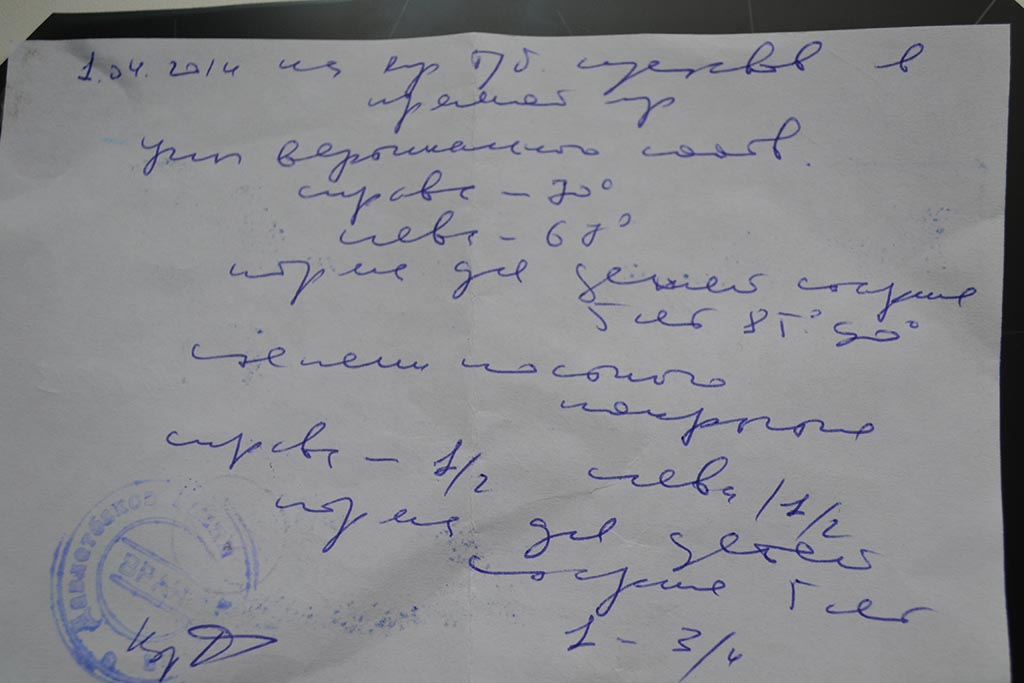 1.04.2014 на гр Т/б. суставов в
прямой пр
Угол вертикального соотв.
справа – 70°
слева – 67°
норма для детей старше
5 лет 85° 90°
степени костного
покрытия
справа – 1/2 слева 1/2
норма для детей
старше 5 лет
1 – 3/4
ВРАЧ